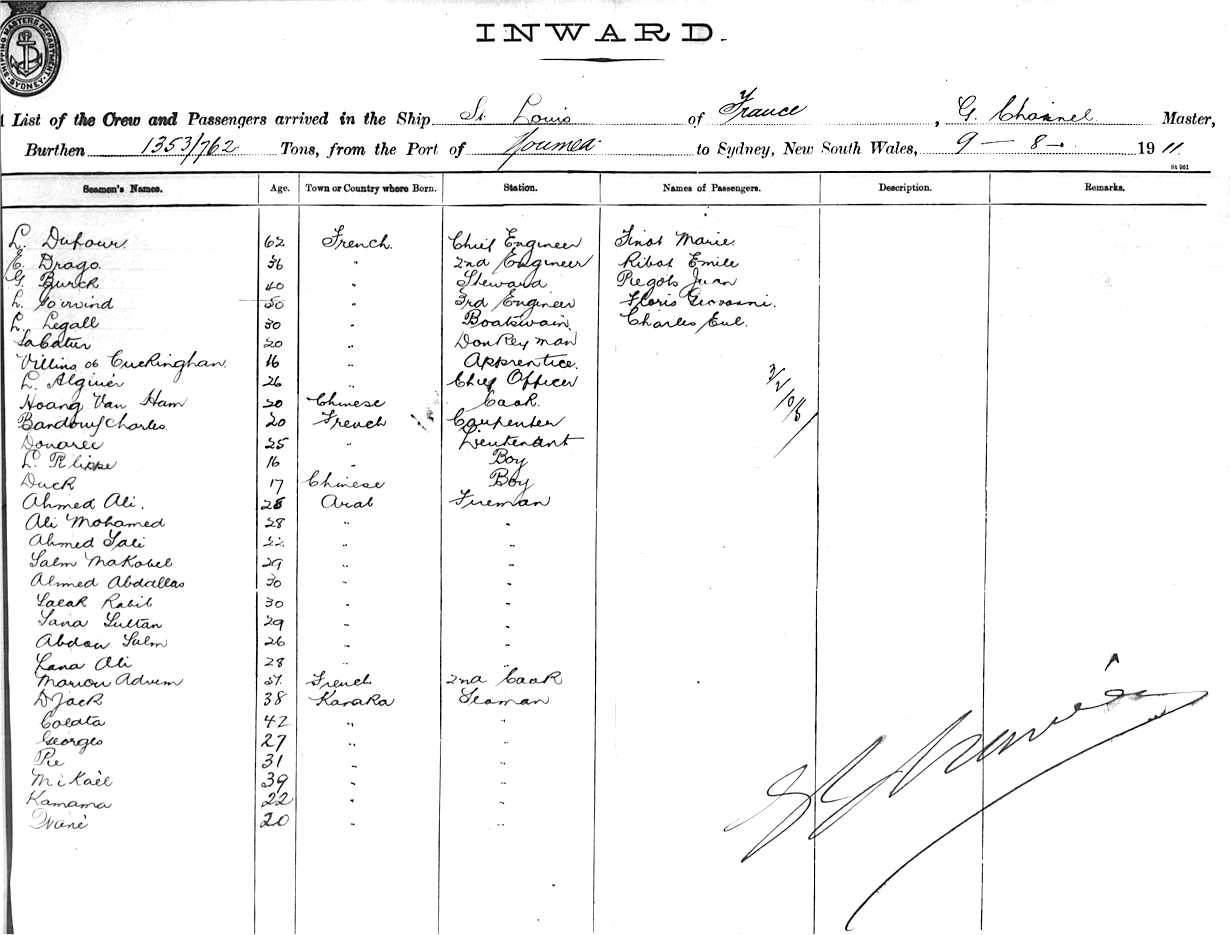 SHIPPING MASTERS DEPARTMENT SYDNEY
INWARD.
List of the Crew and Passengers arrived in the Ship St Louis of France, G. Channel Master,
Burthen 1353/762 Tons, from the Port of Noumea to Sydney, New South Wales, 9 - 8 - 1911
St 961
Seamen's Names. Age. Town or Country where Born. Station. Names of Passengers. Description. Remarks.
L. Dufour. 62 French. Chief Engineer Finot Marie.
E. Drago. 36 " 2nd Engineer Ribot Emile
G. Burck 40 " Steward Juan
L. 50 " 3rd Engineer Floris Giovanni.
L. Legall 30 " Boatswain. Charles Eul.
Sabatur 20 " Donkey man
Villins of Cuckinghan 16 " Apprentice.
L. Alguier 26 " Chief Officer
Hoang Van Ham 20 Chinese Cook.
Charles 20 French Carpenter
Donaree 25 " Lieutenant
L. 16 " Boy
Duck 17 Chinese Boy
Ahmed Ali. 28 Arab Fireman
Ali Mohamed 28 " "
Ahmed Sali 22 " "
Salm Makobel 29 " "
Ahmed Abdallas 30 " "
Salak Rabib 30 " "
Sana Sultan 29 " "
Abdou Salm 26 " "
Lana Ali 28 " "
Marion Adrum 37 French 2nd Cook
DJack 38 Kanaka Seaman
Coldta 42 " "
Georges 27 " "
Pie 31 " "
Mikaël 39 " "
Kamama 22 " "
20 " "